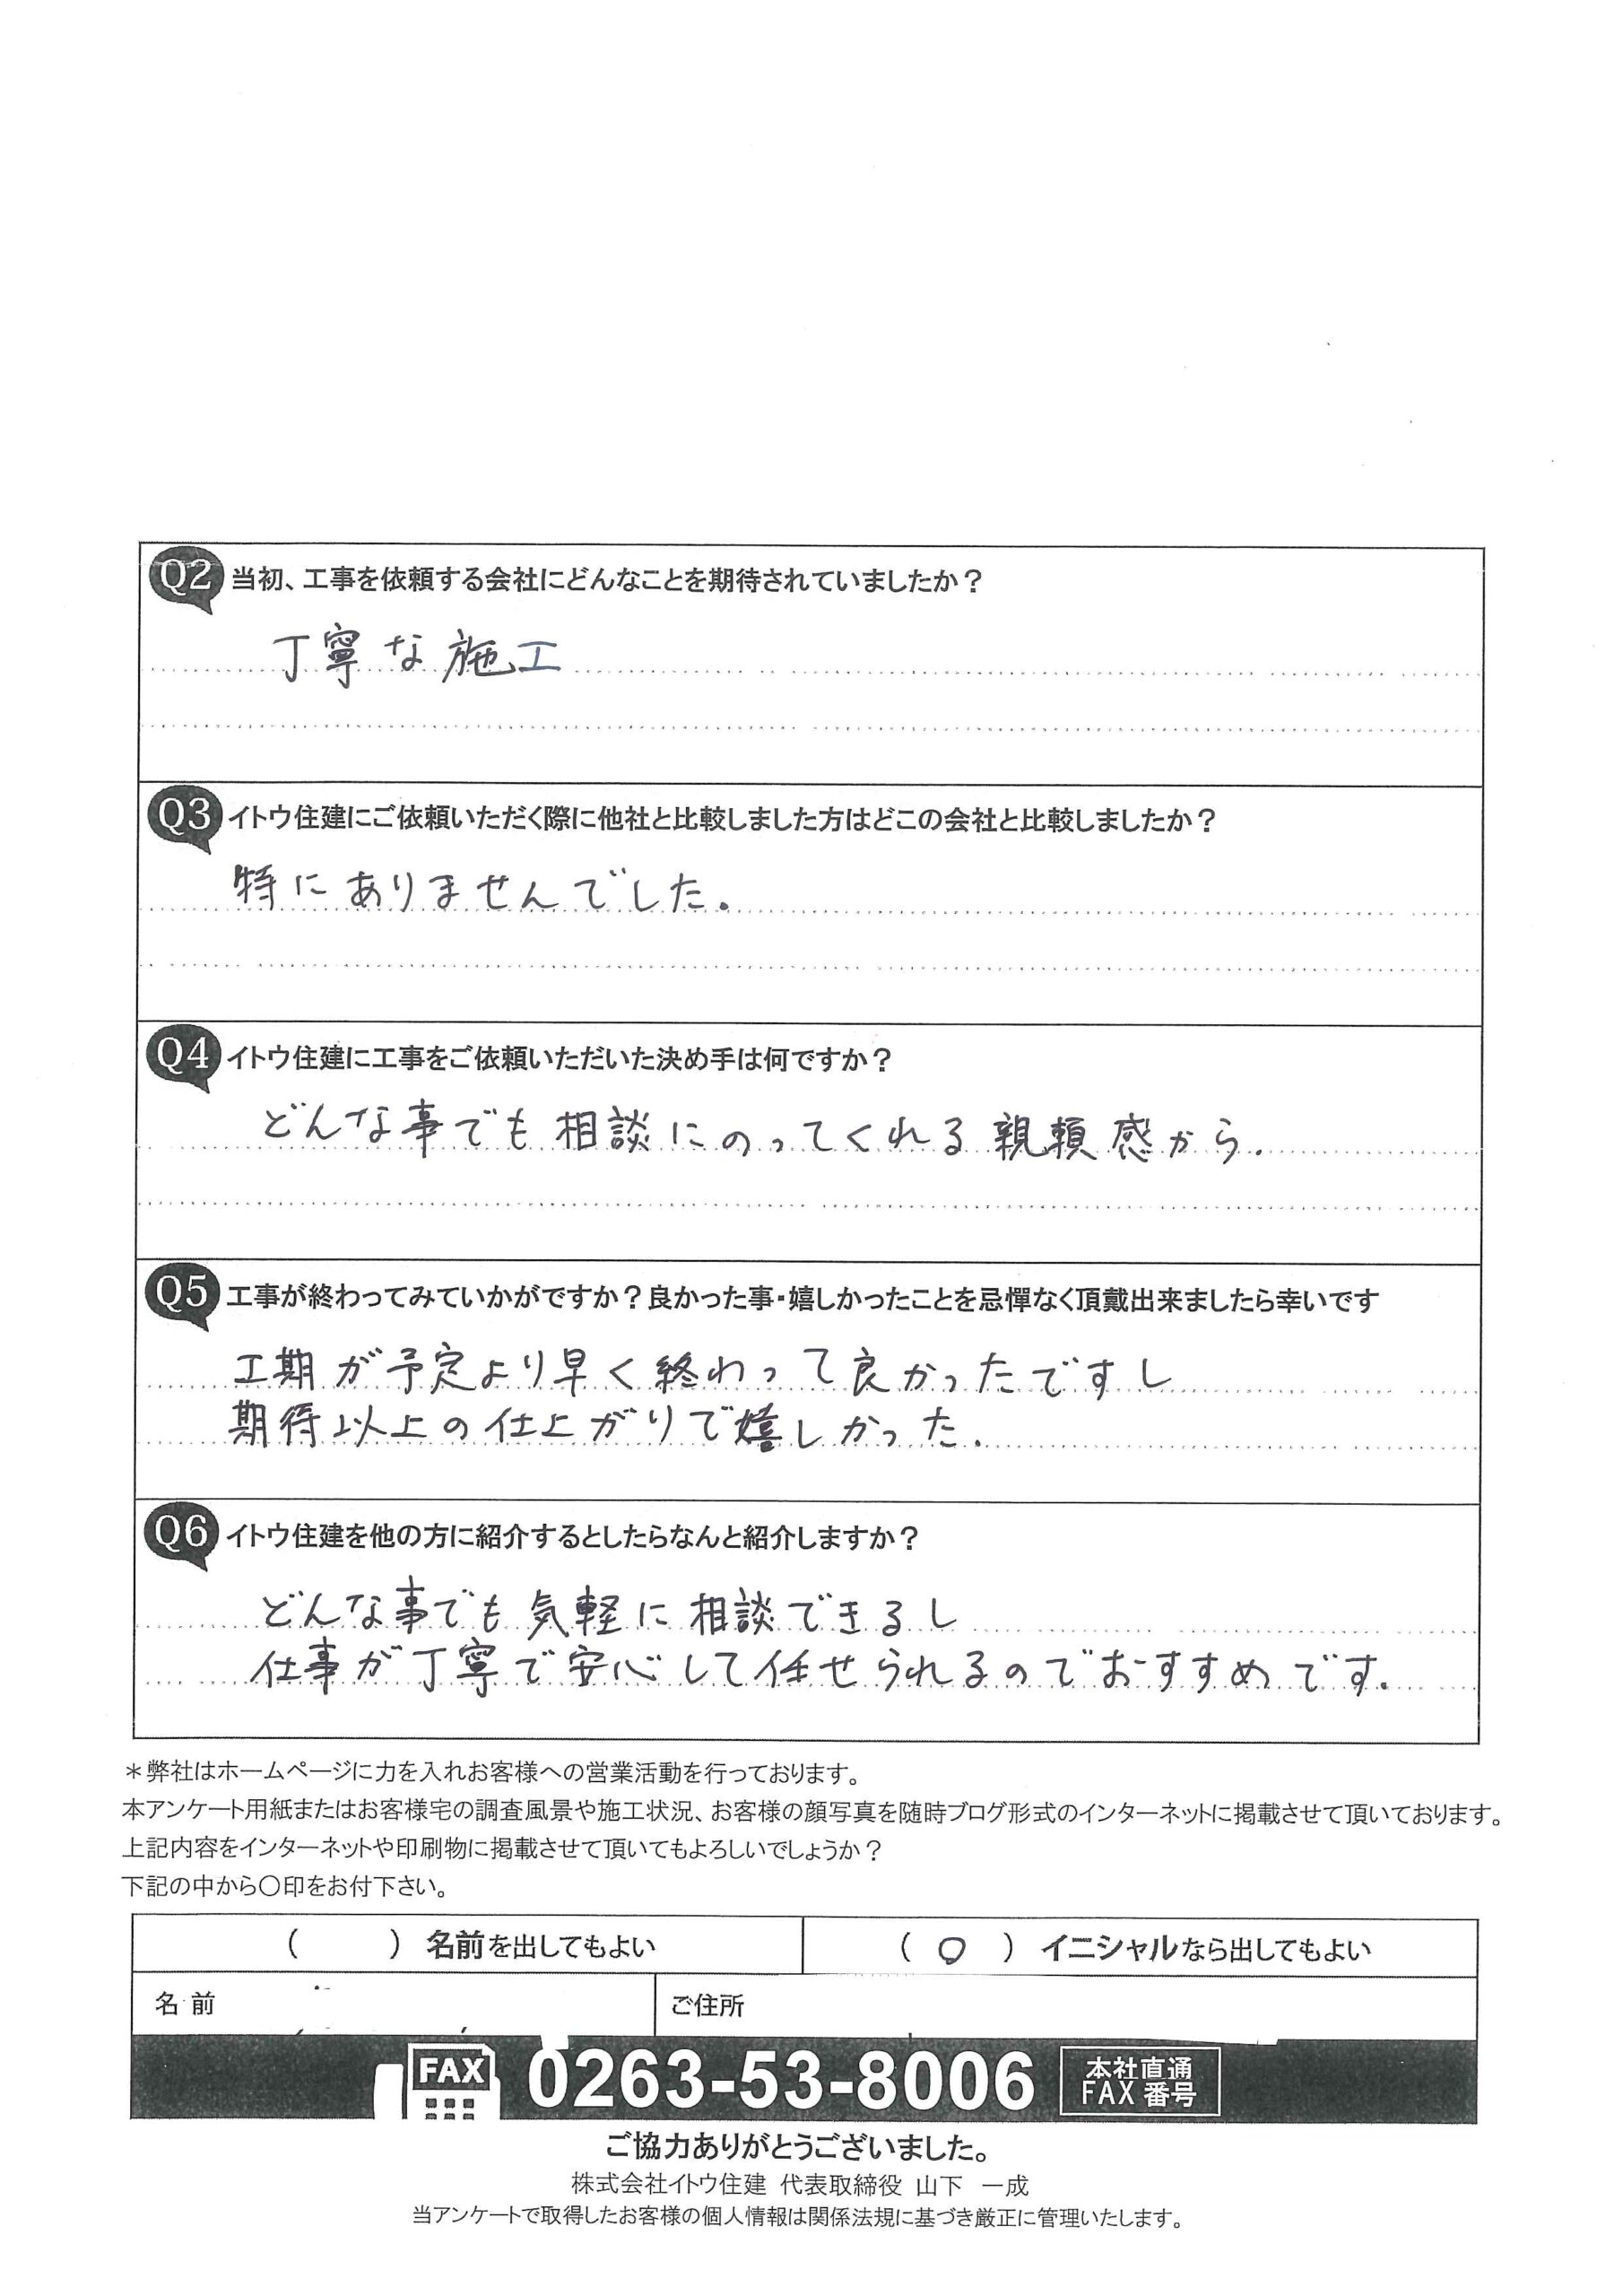 Q2 当初、工事を依頼する会社にどんなことを期待されていましたか？
丁寧な施工
Q3 イトウ住建にご依頼いただく際に他社と比較しました方はどこの会社と比較しましたか？
特にありませんでした。
Q4 イトウ住建に工事をご依頼いただいた決め手は何ですか？
どんな事でも相談にのってくれる親頼感から。
Q5 工事が終わってみていかがですか？良かった事・嬉しかったことを忌憚なく頂戴出来ましたら幸いです
工期が予定より早く終わって良かったですし
期待以上の仕上がりで嬉しかった。
Q6 イトウ住建を他の方に紹介するとしたらなんと紹介しますか？
どんな事でも気軽に相談できるし
仕事が丁寧で安心して任せられるのでおすすめです。
＊弊社はホームページに力を入れお客様への営業活動を行っております。
本アンケート用紙またはお客様宅の調査風景や施工状況、お客様の顔写真を随時ブログ形式のインターネットに掲載させて頂いております。
上記内容をインターネットや印刷物に掲載させて頂いてもよろしいでしょうか？
下記の中から〇印をお付下さい。
（　　）名前を出してもよい （ ○ ）イニシャルなら出してもよい
名前 ご住所
FAX 0263-53-8006 本社直通 FAX 番号
ご協力ありがとうございました。
株式会社イトウ住建 代表取締役 山下 一成
当アンケートで取得したお客様の個人情報は関係法規に基づき厳正に管理いたします。